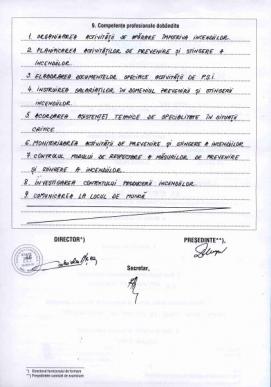 9. Competenţe profesionale dobândite
1. ORGANIZAREA ACTIVITĂŢII DE APĂRARE ÎMPOTRIVA INCENDIILOR
2. PLANIFICAREA ACTIVITĂŢILOR DE PREVENIRE ŞI STINGERE A
INCENDIILOR
3 ELABORAREA DOCUMENTELOR SPECIFICE ACTIVITĂŢII DE P.S.I.
4. INSTRUIREA SALARIAŢILOR ÎN DOMENIUL PREVENIRII ŞI STINGERII
INCENDIILOR
5 ACORDAREA ASISTENŢEI TEHNICE DE SPECIALITATE ÎN SITUAŢII
CRITICE
6. MONITORIZAREA ACTIVITĂŢII DE PREVENIRE ŞI STINGERE A INCENDIILOR
7 CONTROLUL MODULUI DE RESPECTARE A MĂSURILOR DE PREVENIRE
ŞI STINGERE A INCENDIILOR
8 INVESTIGAREA CONTEXTULUI PRODUCERII INCENDIILOR
9 COMUNICAREA LA LOCUL DE MUNCĂ
DIRECTOR*)
PREŞEDINTE**),
Secretar,
*) Directorul furnizorului de formare
**) Preşedintele comisiei de examinare